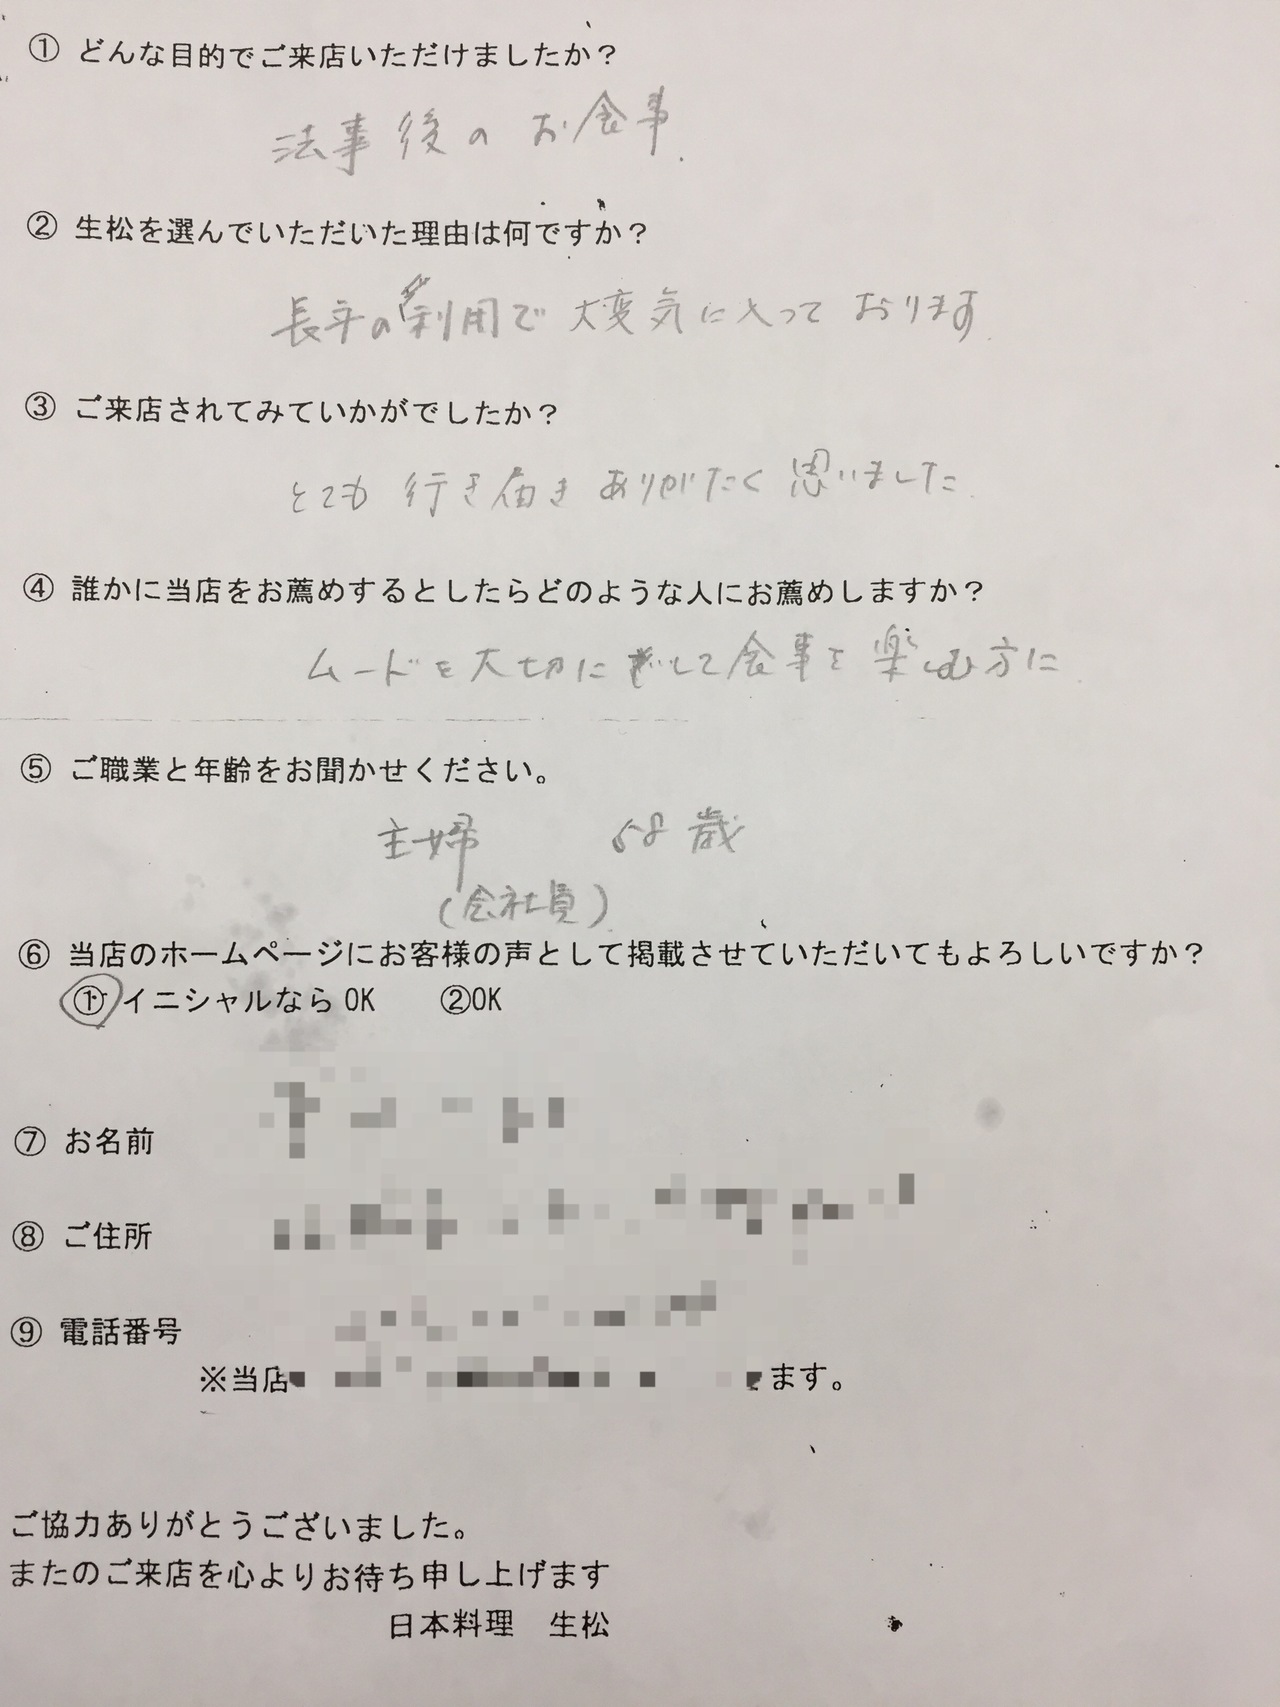 ① どんな目的でご来店いただけましたか？
法事後の お食事.
② 生松を選んでいただいた理由は何ですか？
長年の利用で 大変気に入って おります.
③ ご来店されてみていかがでしたか？
とても 行き届き ありがたく 思いました.
④ 誰かに当店をお薦めするとしたらどのような人にお薦めしますか？
ムードを大切にして食事を楽しむ方に.
⑤ ご職業と年齢をお聞かせください。
主婦 58歳
(会社員)
⑥ 当店のホームページにお客様の声として掲載させていただいてもよろしいですか？
①イニシャルならOK ②OK
⑦ お名前
⑧ ご住所
⑨ 電話番号
※当店 ます。
ご協力ありがとうございました。
またのご来店を心よりお待ち申し上げます
日本料理 生松